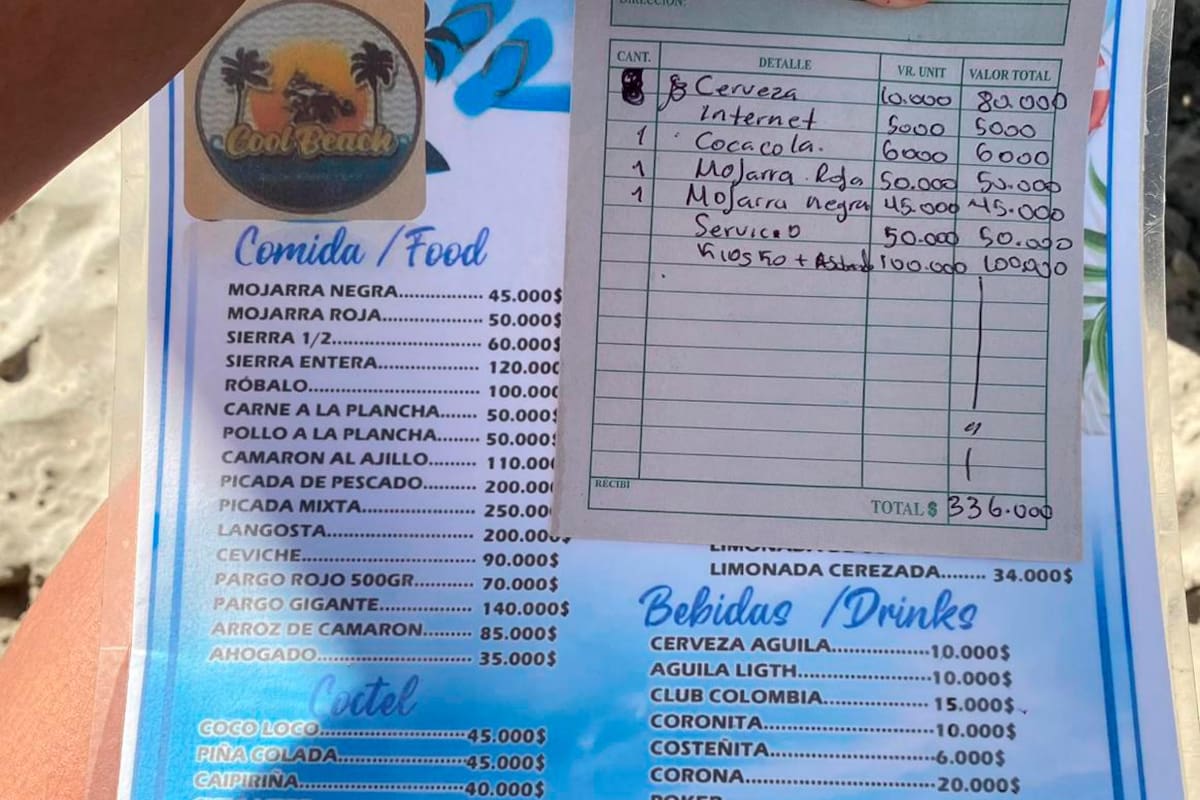 Cool Beach
Comida / Food
MOJARRA NEGRA................ 45.000$
MOJARRA ROJA.................... 50.000$
SIERRA 1/2.............................. 60.000$
SIERRA ENTERA.................... 120.000
RÓBALO.................................. 100.000
CARNE A LA PLANCHA....... 50.000$
POLLO A LA PLANCHA........ 50.000$
CAMARON AL AJILLO......... 110.000
PICADA DE PESCADO.......... 200.000
PICADA MIXTA...................... 250.00
LANGOSTA............................. 200.000$
CEVICHE.................................. 90.000$
PARGO ROJO 500GR........... 70.000$
PARGO GIGANTE.................. 140.000$
ARROZ DE CAMARON......... 85.000$
AHOGADO.............................. 35.000$
Coctel
COCO LOCO..........................45.000$
PIÑA COLADA......................45.000$
CAIPIRIÑA.............................40.000$
DIRECCIÓN:
CANT. DETALLE VR. UNIT VALOR TOTAL
8 Cerveza 10.000 80.000
Internet 5000 5000
1 Cocacola. 6000 6000
1 Mojarra Roja 50.000 50.000
1 Mojarra negra 45.000 45.000
Servicio 50.000 50.000
Kiosko + 100.000 100.000
RECIBI
TOTAL $ 336.000
LIMONADA
LIMONADA CEREZADA........ 34.000$
Bebidas /Drinks
CERVEZA AGUILA...................10.000$
AGUILA LIGTH..........................10.000$
CLUB COLOMBIA..................... 15.000$
CORONITA.................................10.000$
COSTEÑITA................................6.000$
CORONA.....................................20.000$
POKER